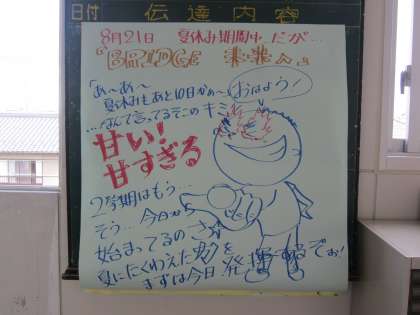 日付 伝達内容
8月21日 夏休み期間中だが…
"BRIDGE
「あ〜あ〜
夏休みもあと10日かぁ〜」
…なんて言ってるそこのキミ
おはよう!
甘い!
甘すぎる
2学期はもう…
そう…今日から
始まってるのさ
夏にたくわえた力を
まずは今日発揮するでぉ!